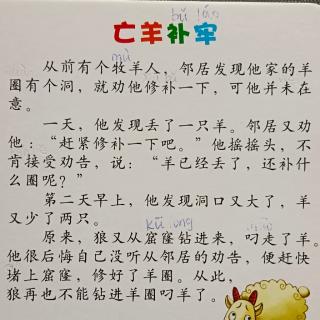 bǔ láo
亡羊补牢
mù
从前有个牧羊人，邻居发现他家的羊
圈有个洞，就劝他修补一下，可他并未在
意。
一天，他发现丢了一只羊。邻居又劝
他：“赶紧修补一下吧。”他摇摇头，不
肯接受劝告，说：“羊已经丢了，还补什
么圈呢？”
第二天早上，他发现洞口又大了，羊
又少了两只。
kū lóng
原来，狼又从窟窿钻进来，叼走了羊。
他很后悔自己没听从邻居的劝告，便赶快
堵上窟窿，修好了羊圈。从此，
狼再也不能钻进羊圈叼羊了。